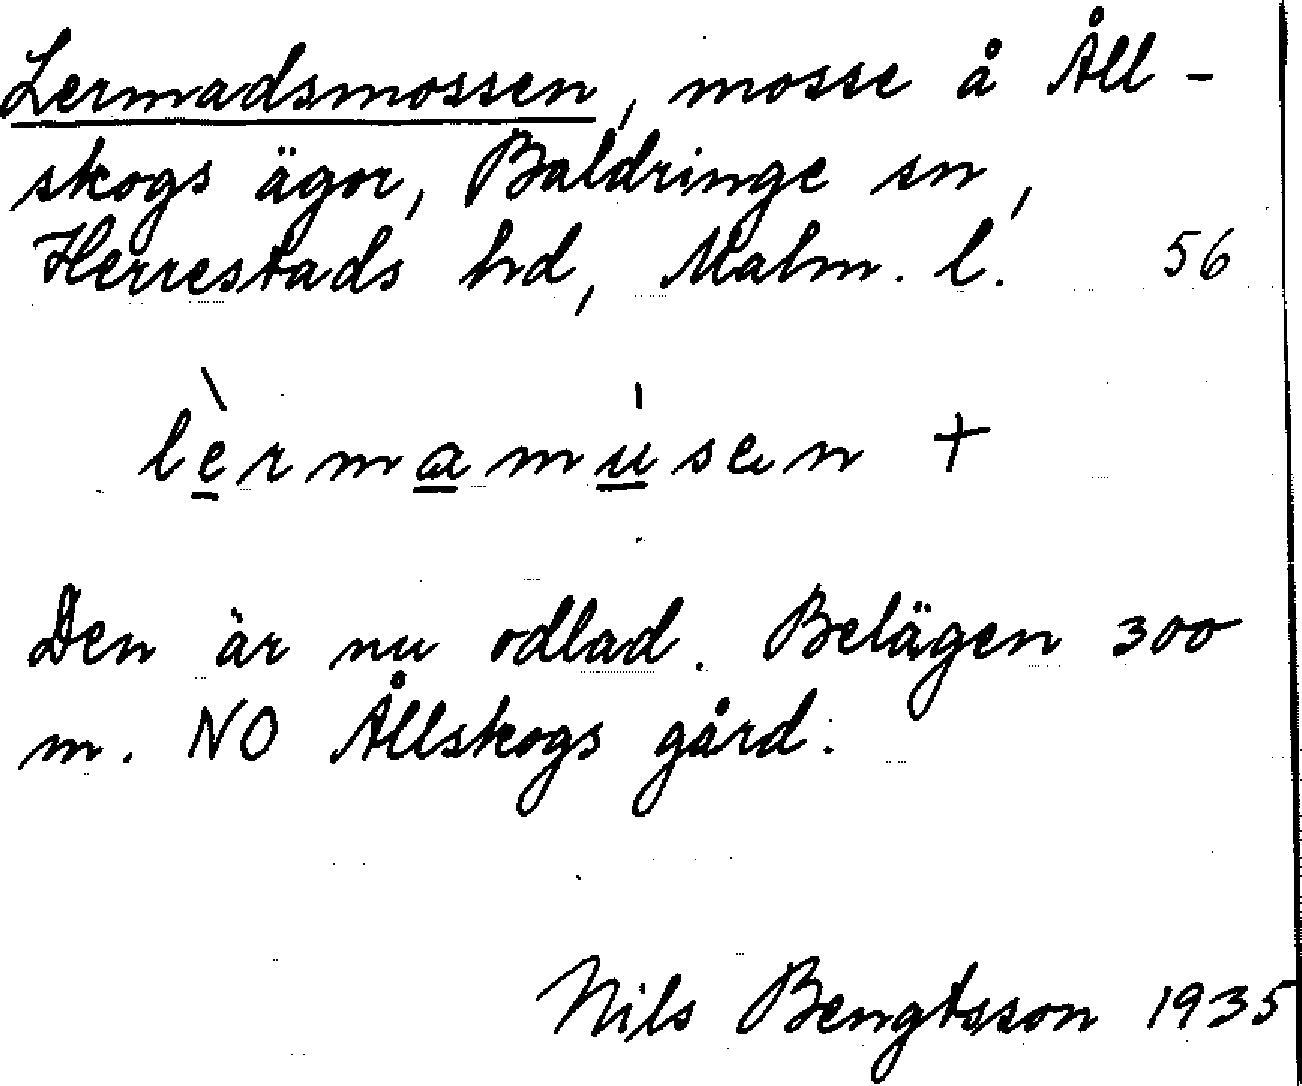 Lermadsmossen, mosse å Åll-
skogs ägor, Baldringe sn,
Herrestads hd, Malm. l. 56
lèrmamúsen +
Den är nu odlad. Belägen 300
m. NO Ållskogs gård.
Nils Bengtsson 1935